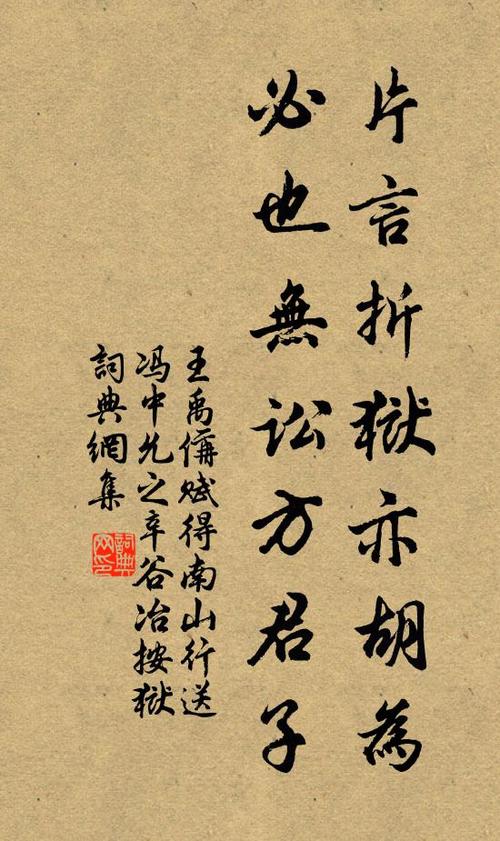 片言折獄亦胡為
必也無讼方君子
王禹偁赋得南山行送
冯中允之辛谷冶按獄
詞典網集
詞典
网印